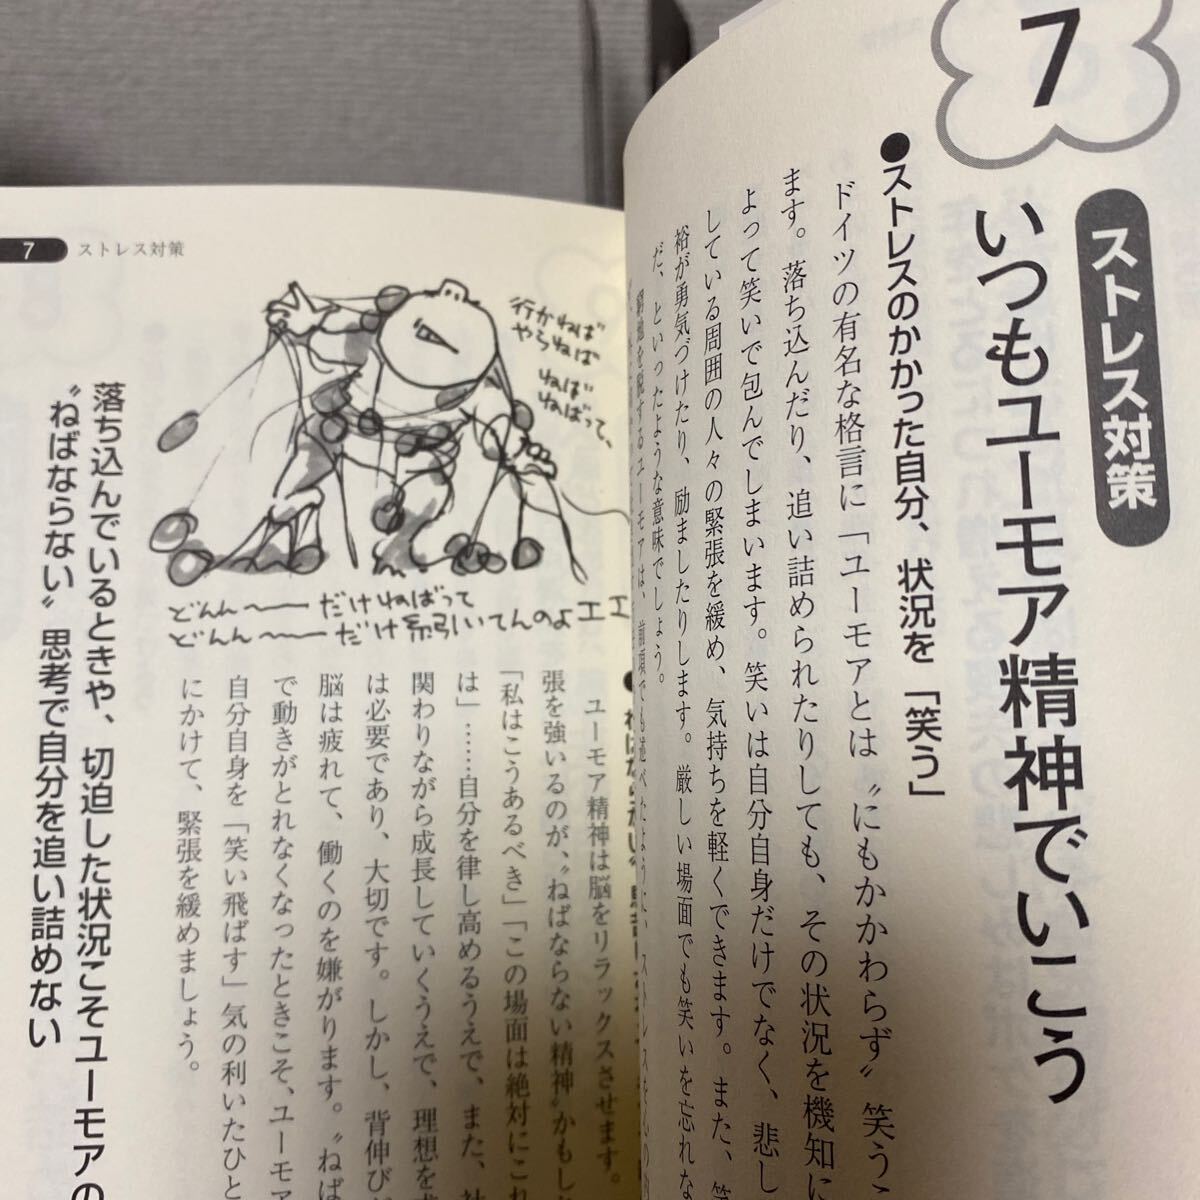 7
ストレス対策
いつもユーモア精神でいこう
●ストレスのかかった自分、状況を「笑う」
ドイツの有名な格言に「ユーモアとは〝にもかかわらず〟笑うこ
ます。落ち込んだり、追い詰められたりしても、その状況を機知に
よって笑いで包んでしまいます。笑いは自分自身だけでなく、悲し
している周囲の人々の緊張を緩め、気持ちを軽くできます。また、笑
裕が勇気づけたり、励ましたりします。厳しい場面でも笑いを忘れな
だ、といったような意味でしょう。
窮地を脱するユーモアは、前項でも述べたように、ストレス
7 ストレス対策
行かねば
やらねば
ねば
ねばって、
どんん〜〜だけねばって
どんん〜〜だけ糸引いてんのよエエ
ユーモア精神は脳をリラックスさせます。
張を強いるのが、〝ねばならない精神〟かもし
「私はこうあるべき」「この場面は絶対にこれ
は」……自分を律し高めるうえで、また、社
関わりながら成長していくうえで、理想を
は必要であり、大切です。しかし、背伸びが
脳は疲れて、働くのを嫌がります。〝ねば
で動きがとれなくなったときこそ、ユーモア
自分自身を「笑い飛ばす」気の利いたひと
にかけて、緊張を緩めましょう。
落ち込んでいるときや、切迫した状況こそユーモアの
〝ねばならない〟思考で自分を追い詰めない